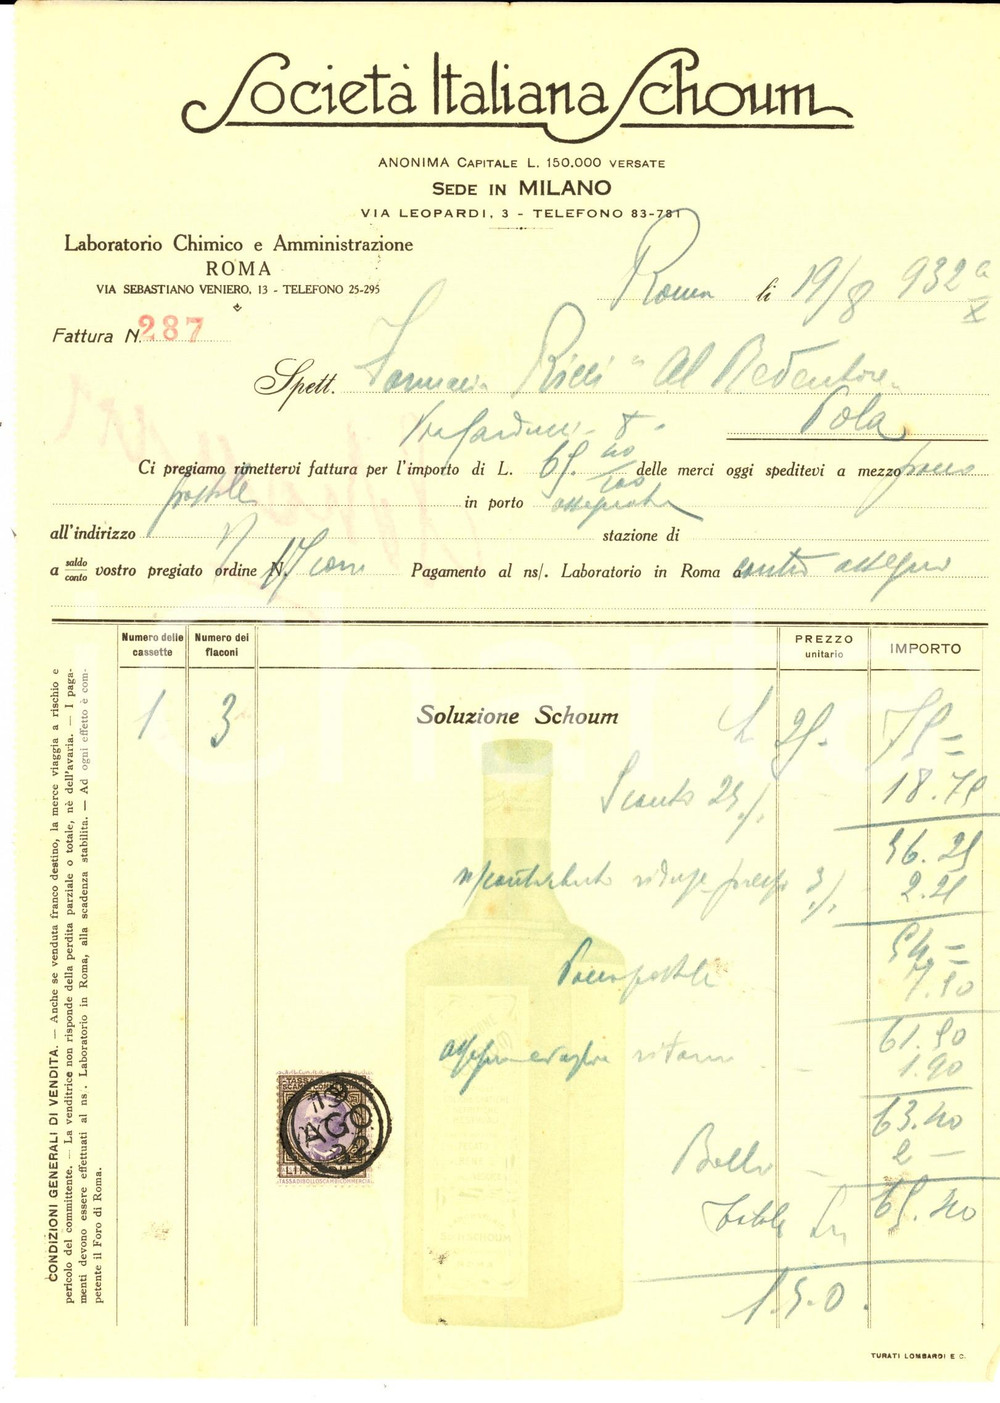 Società Italiana Schoum
ANONIMA CAPITALE L. 150.000 VERSATE
SEDE IN MILANO
VIA LEOPARDI, 3 - TELEFONO 83-781
Laboratorio Chimico e Amministrazione
ROMA
VIA SEBASTIANO VENIERO, 13 - TELEFONO 25-295
Roma li 19/8 932 a X
Fattura N. 287
Spett. Farmacia Ricci "Al Redentore"
Via Carducci - 8 - Pola
Ci pregiamo rimettervi fattura per l'importo di L. 65.40/100 delle merci oggi speditevi a mezzo pacco
postale in porto assegnato
all'indirizzo stazione di
a saldo/conto vostro pregiato ordine N. 17 corr Pagamento al ns/. Laboratorio in Roma a contro assegno
Numero delle cassette Numero dei flaconi PREZZO unitario IMPORTO
1 3 Soluzione Schoum L 25.- 75=
Sconto 25% 18.75
56.25
n/contributo riduz. prezzo 3% 2.25
54=
Pacco postale 7.50
61.50
ritorno 1.90
63.40
Bollo - 2 -
totale Lire 65.40
1.5.0.
CONDIZIONI GENERALI DI VENDITA. — Anche se venduta franco destino, la merce viaggia a rischio e
pericolo del committente. — La venditrice non risponde della perdita parziale o totale, nè dell'avaria. — I paga-
menti devono essere effettuati al ns. Laboratorio in Roma, alla scadenza stabilita. — Ad ogni effetto è com-
petente il Foro di Roma.
19
AGO
32
LIRE
TASSA DI BOLLO SCAMBI COMMERCIALI
TURATI LOMBARDI E C.